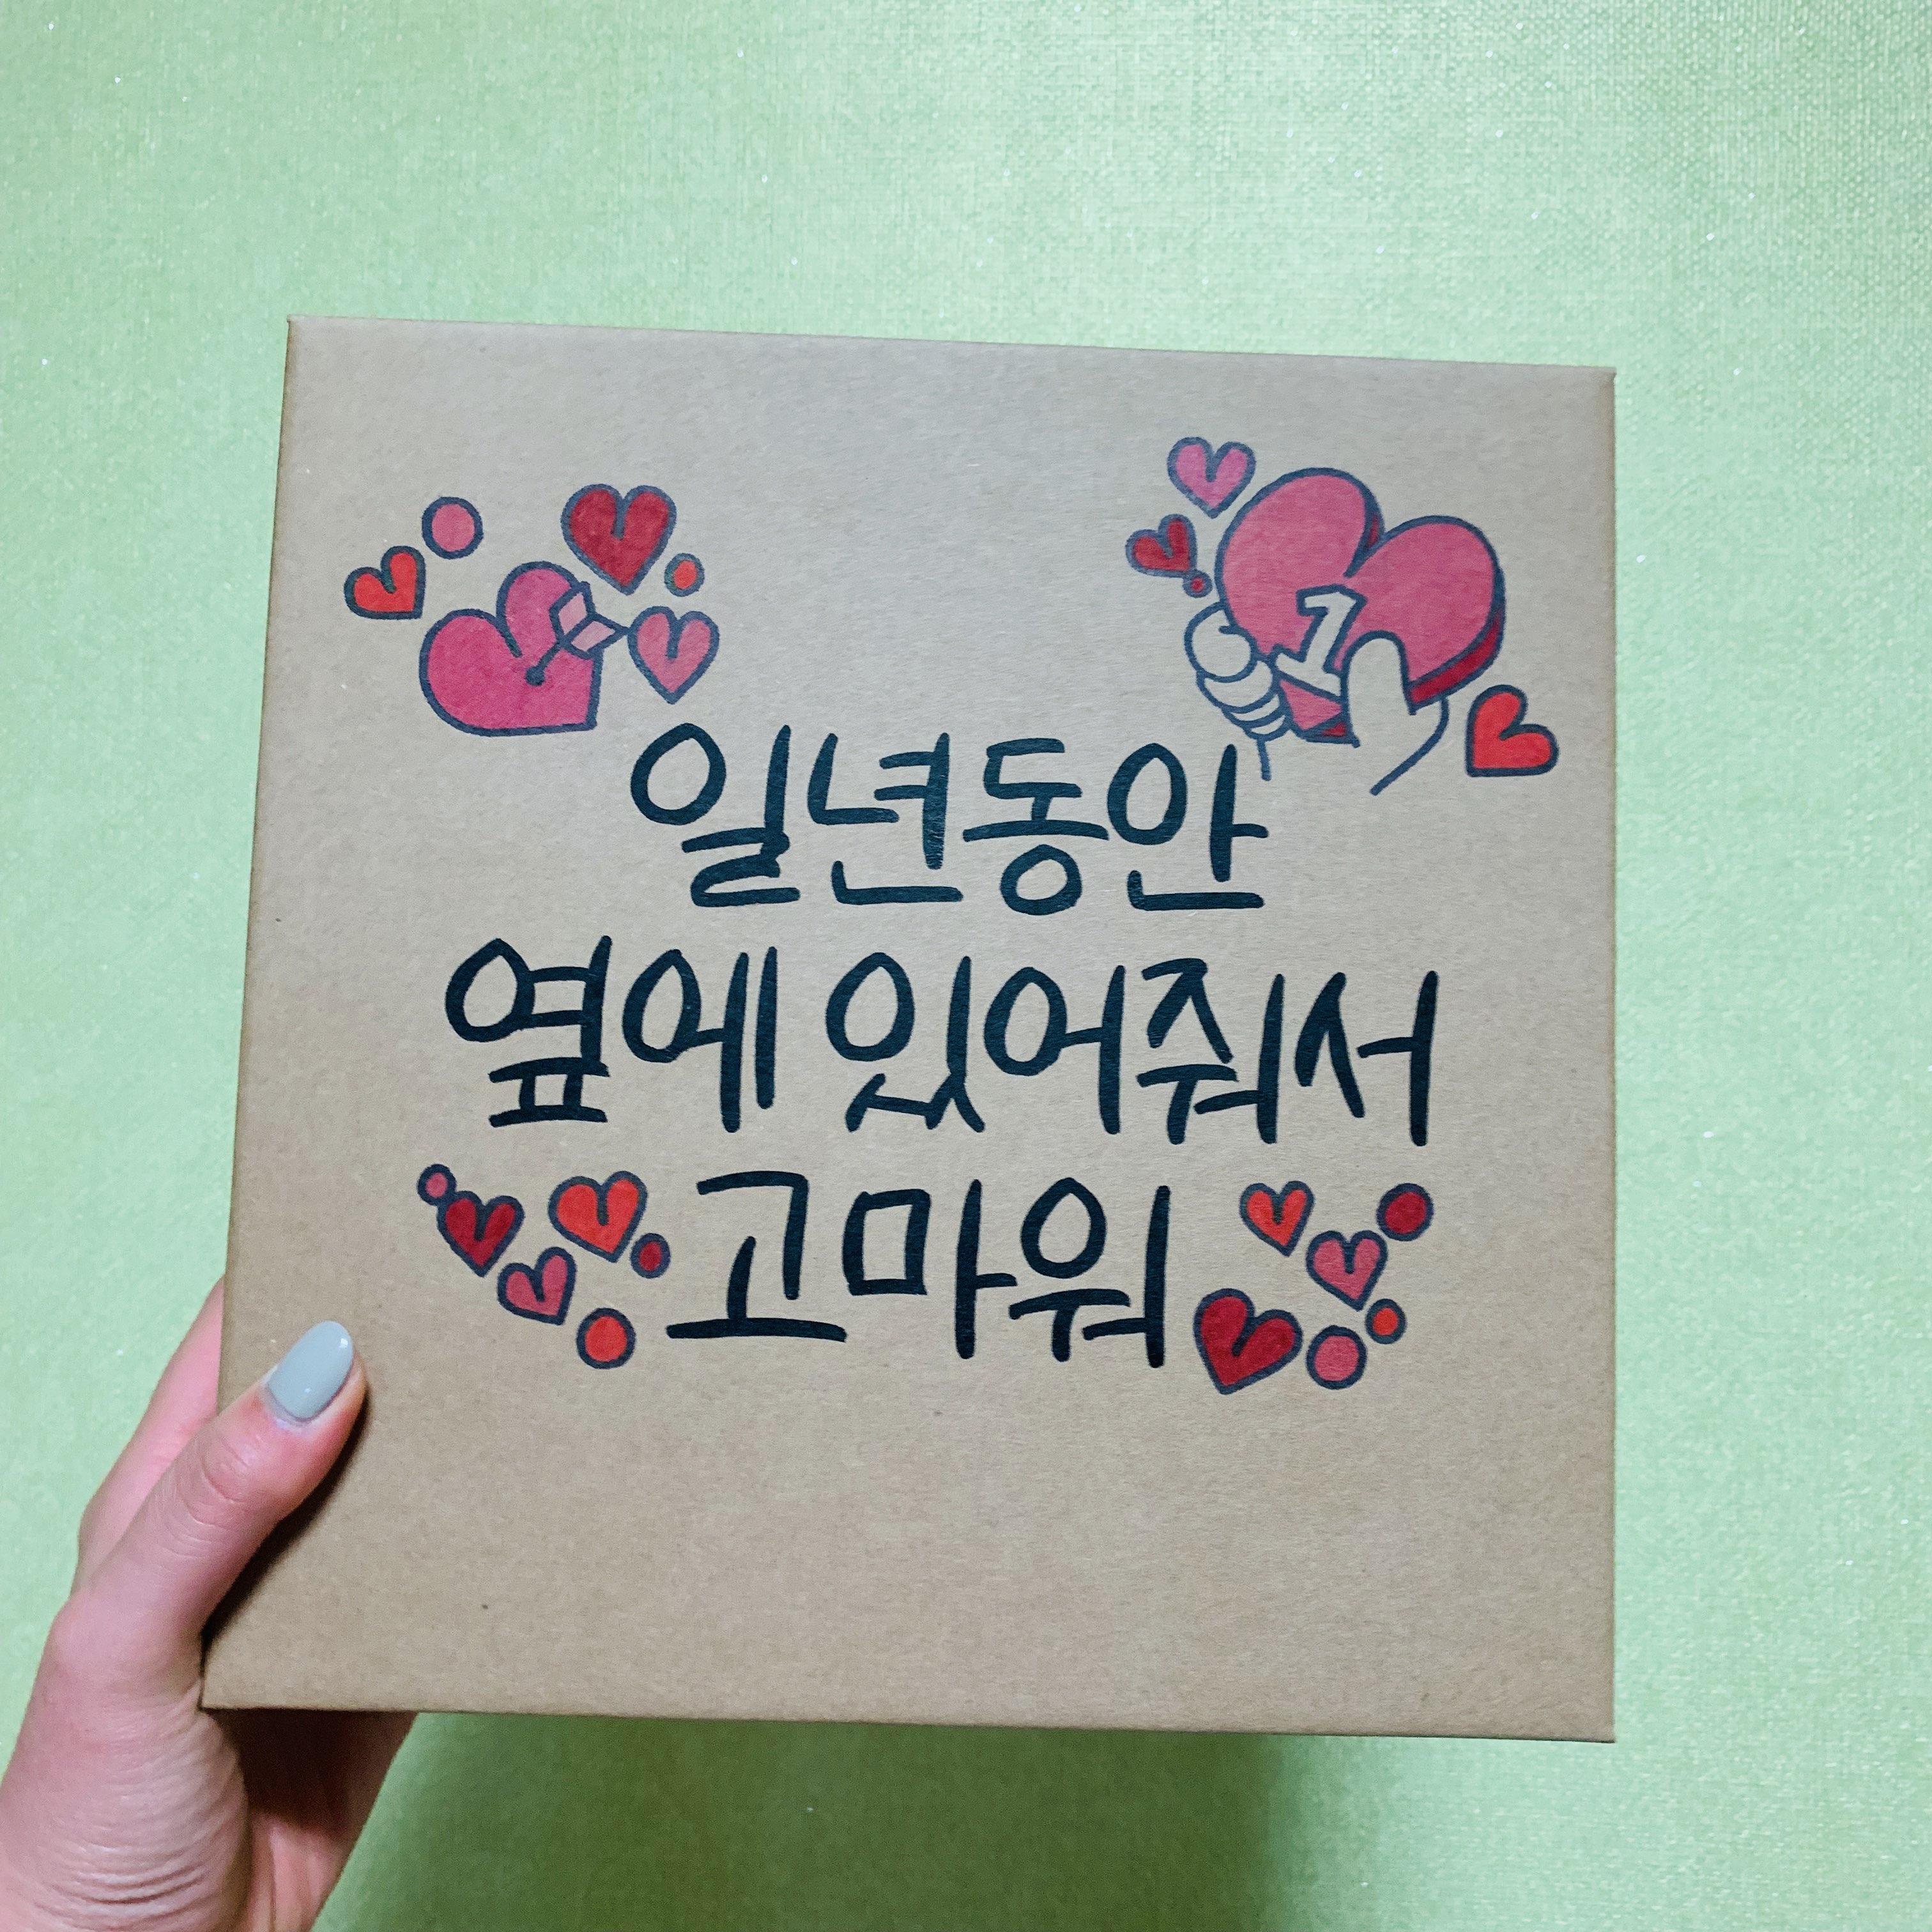 1
일년동안
옆에 있어줘서
고마워